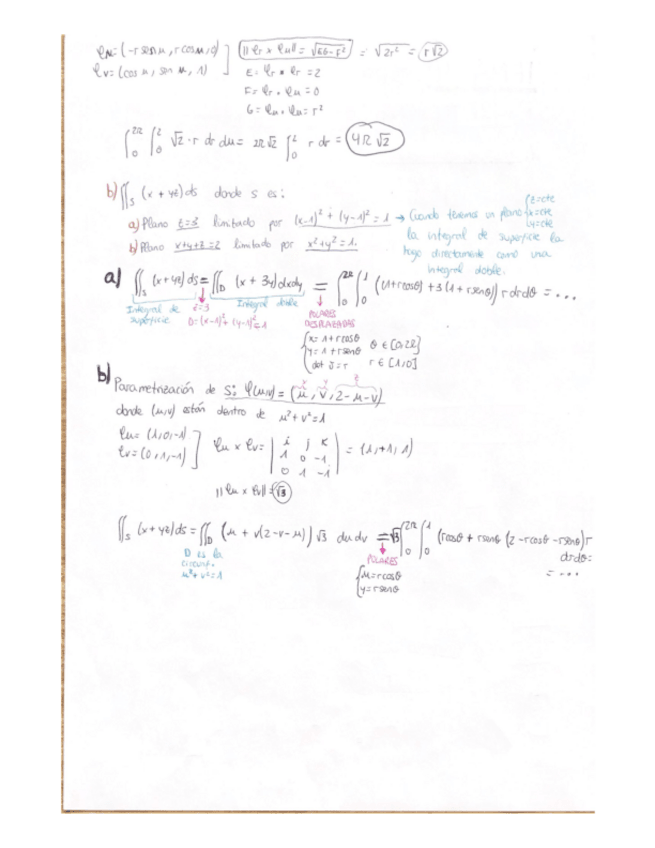 φu = (-r sen u, r cos u, 0)
φv = (cos u, sen u, 1)
||φr x φu|| = √(EG-F²) = √2r² = r√2
E = φr • φr = 2
F = φr • φu = 0
G = φu • φu = r²
∫₀^2π ∫₀² √2 · r dr du = 2π√2 ∫₀² r dr = 4π√2
b) ∬s (x + yz) ds donde s es:
a) Plano z=3 limitado por (x-1)² + (y-1)² = 1 → Cuando tenemos un plano {z=cte x=cte y=cte
b) Plano x+y+z=2 limitado por x²+y²=1.
la integral de superficie la
hago directamente como una
integral doble.
a) ∬s (x+yz) ds = ∬D (x + 3y) dx dy = ∫₀^2π ∫₀¹ ((1+r cosθ) + 3(1+r senθ)) r dr dθ = ...
Integral de superficie
z=3
D=(x-1)²+(y-1)²≤1
Integral doble
POLARES
DESPLAZADAS
x = 1+r cosθ
y = 1+r senθ
det J = r
θ ∈ [0,2π]
r ∈ [1,0]
b) Parametrización de S: φ(u,v) = (u, v, 2-u-v)
x y z
donde (u,v) están dentro de u²+v²=1
φu = (1,0,-1)
φv = (0,1,-1)
φu x φv = | i j k | = (1,+1,1)
1 0 -1
0 1 -1
||φu x φv|| = √3
∬s (x+yz) ds = ∬D (u + v(2-v-u)) √3 du dv = √3 ∫₀^2π ∫₀¹ (r cosθ + r senθ (2-r cosθ-r senθ) r
dr dθ =
= ...
D es la
circunf.
u²+v²=1
POLARES
u = r cosθ
y = r senθ